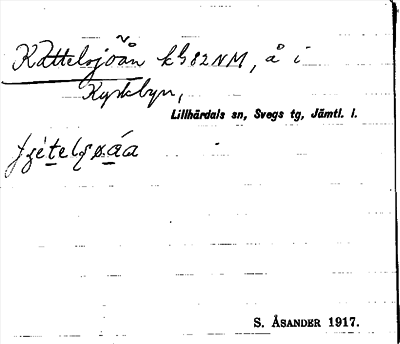 Kättelsjöån kh82NM, å i
Kyrkbyn,
Lillhärdals sn, Svegs tg, Jämtl. l.
S. ÅSANDER 1917.